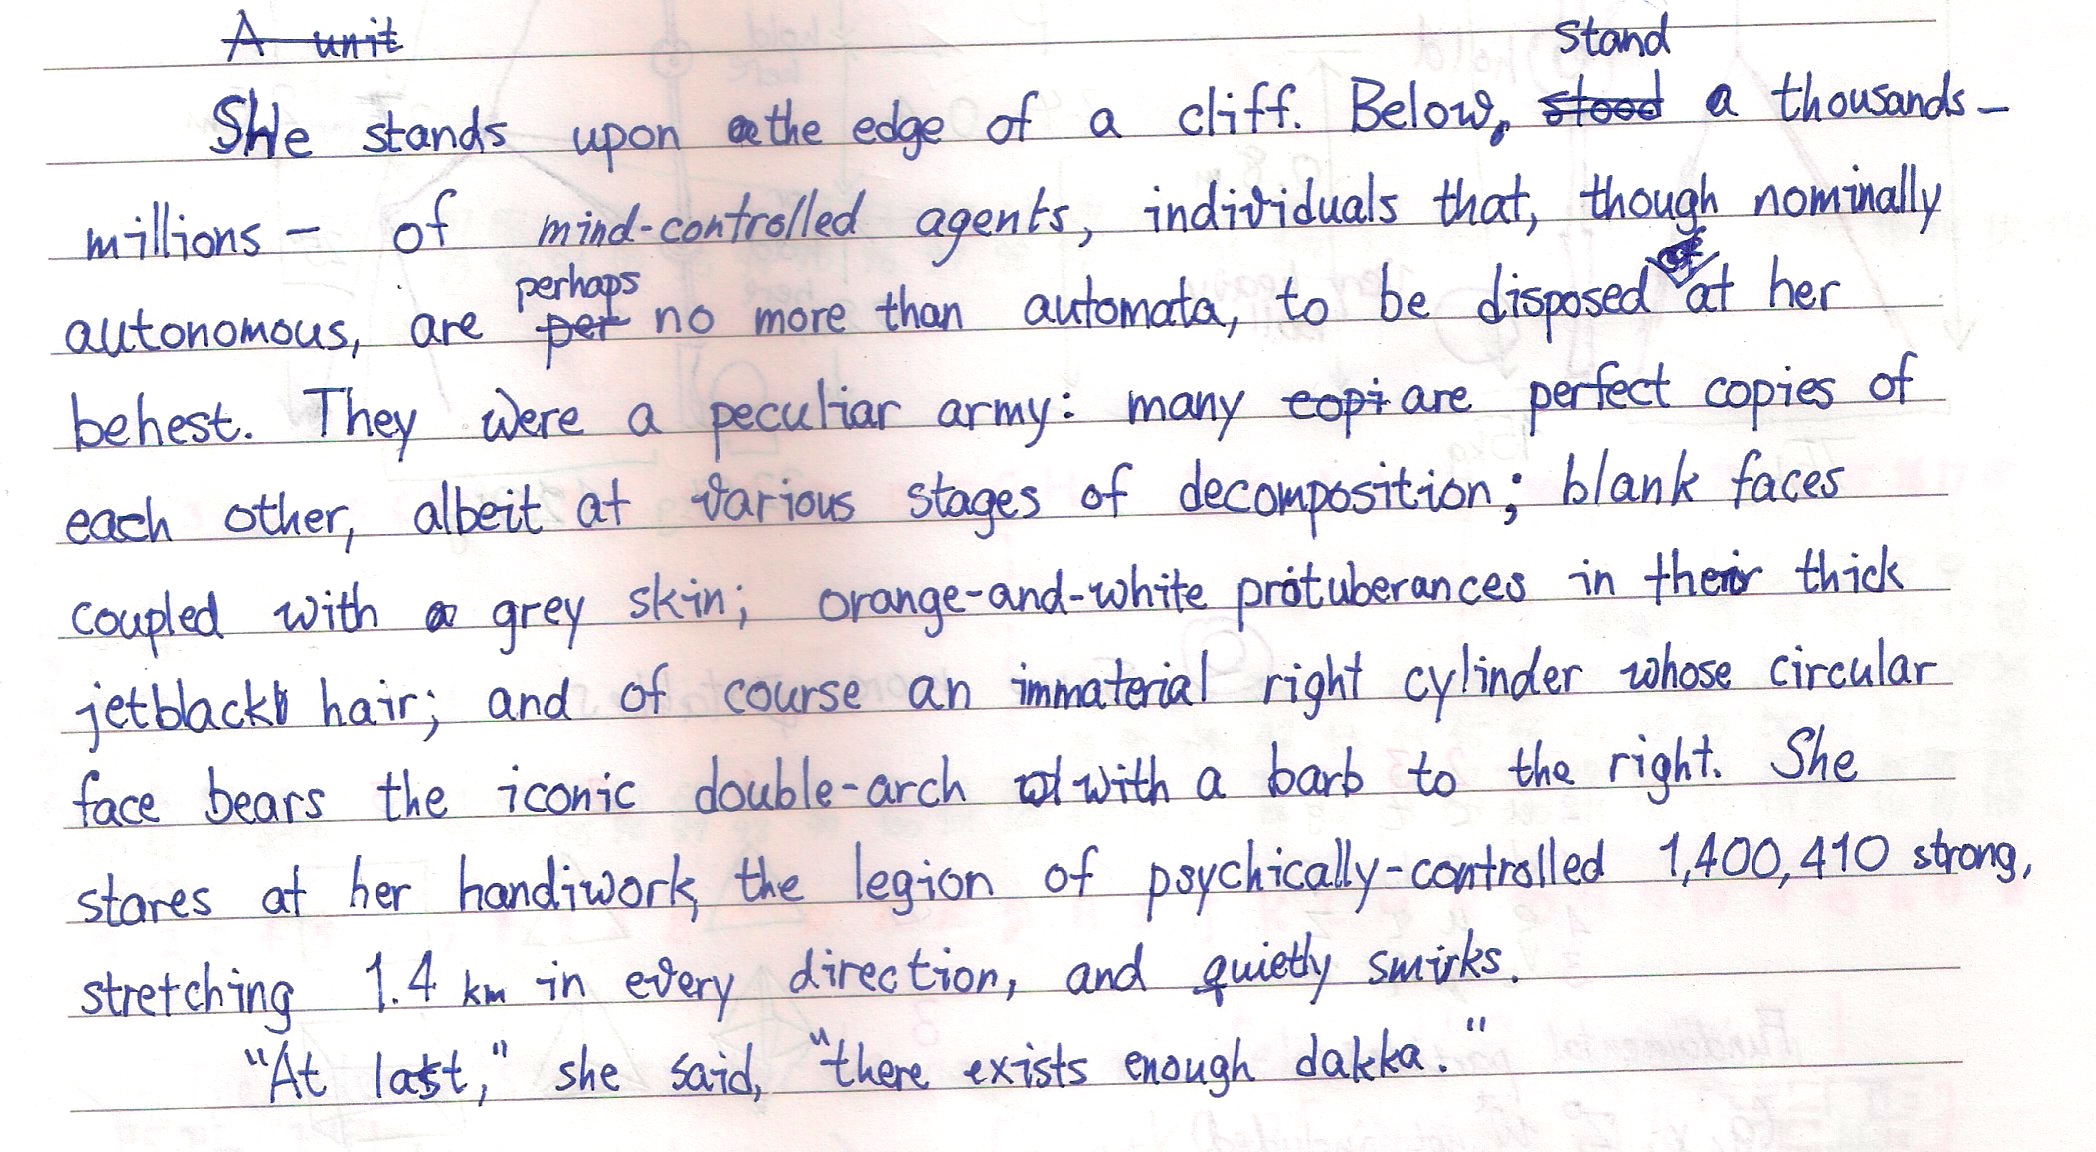 A unit
She stands upon the edge of a cliff. Below, stood stand a thousands-
millions - of mind-controlled agents, individuals that, though nominally
autonomous, are per perhaps no more than automata, to be disposed of at her
behest. They were a peculiar army: many copi are perfect copies of
each other, albeit at various stages of decomposition; blank faces
coupled with a grey skin; orange-and-white protuberances in their thick
jetblack hair; and of course an immaterial right cylinder whose circular
face bears the iconic double-arch with a barb to the right. She
stares at her handiwork, the legion of psychically-controlled 1,400,410 strong,
stretching 1.4 km in every direction, and quietly smirks.
"At last," she said, "there exists enough dakka."